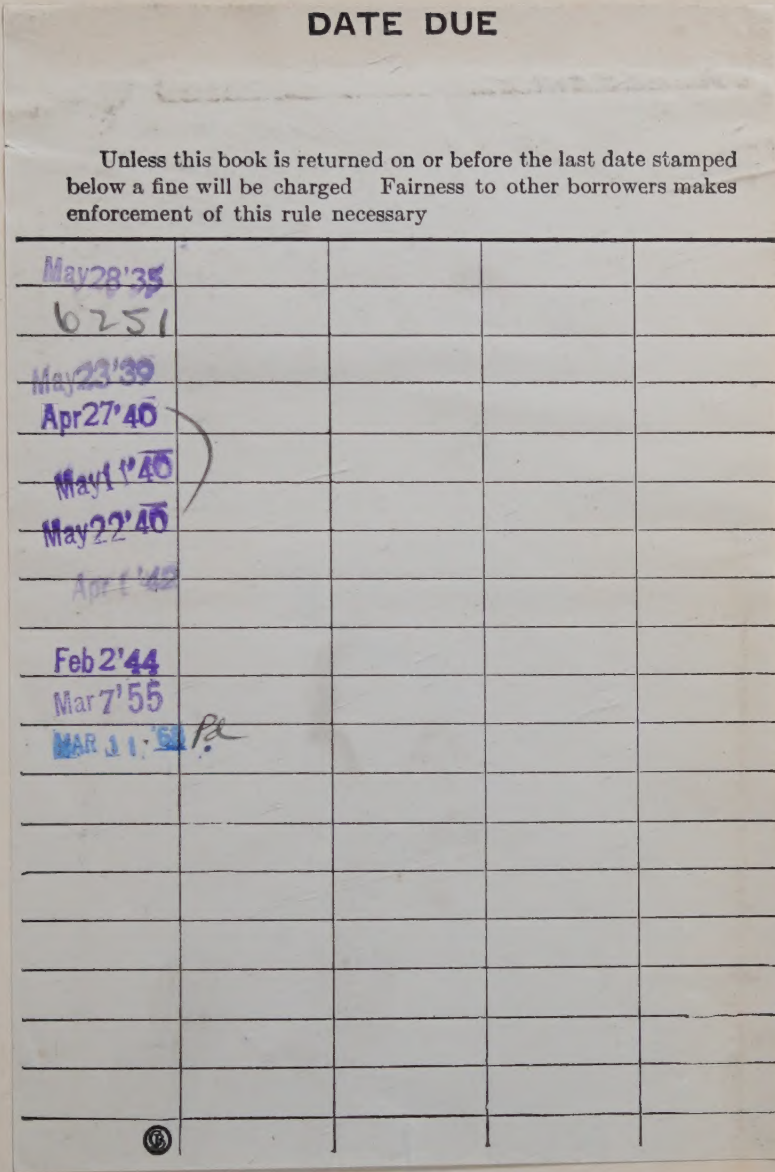 DATE DUE
Unless this book is returned on or before the last date stamped
below a fine will be charged Fairness to other borrowers makes
enforcement of this rule necessary
May 28 '35
6251
May 23 '39
Apr 27 '40
May 11 '40
May 22 '40
Apr 1 '42
Feb 2 '44
Mar 7 '55
MAR Pd.